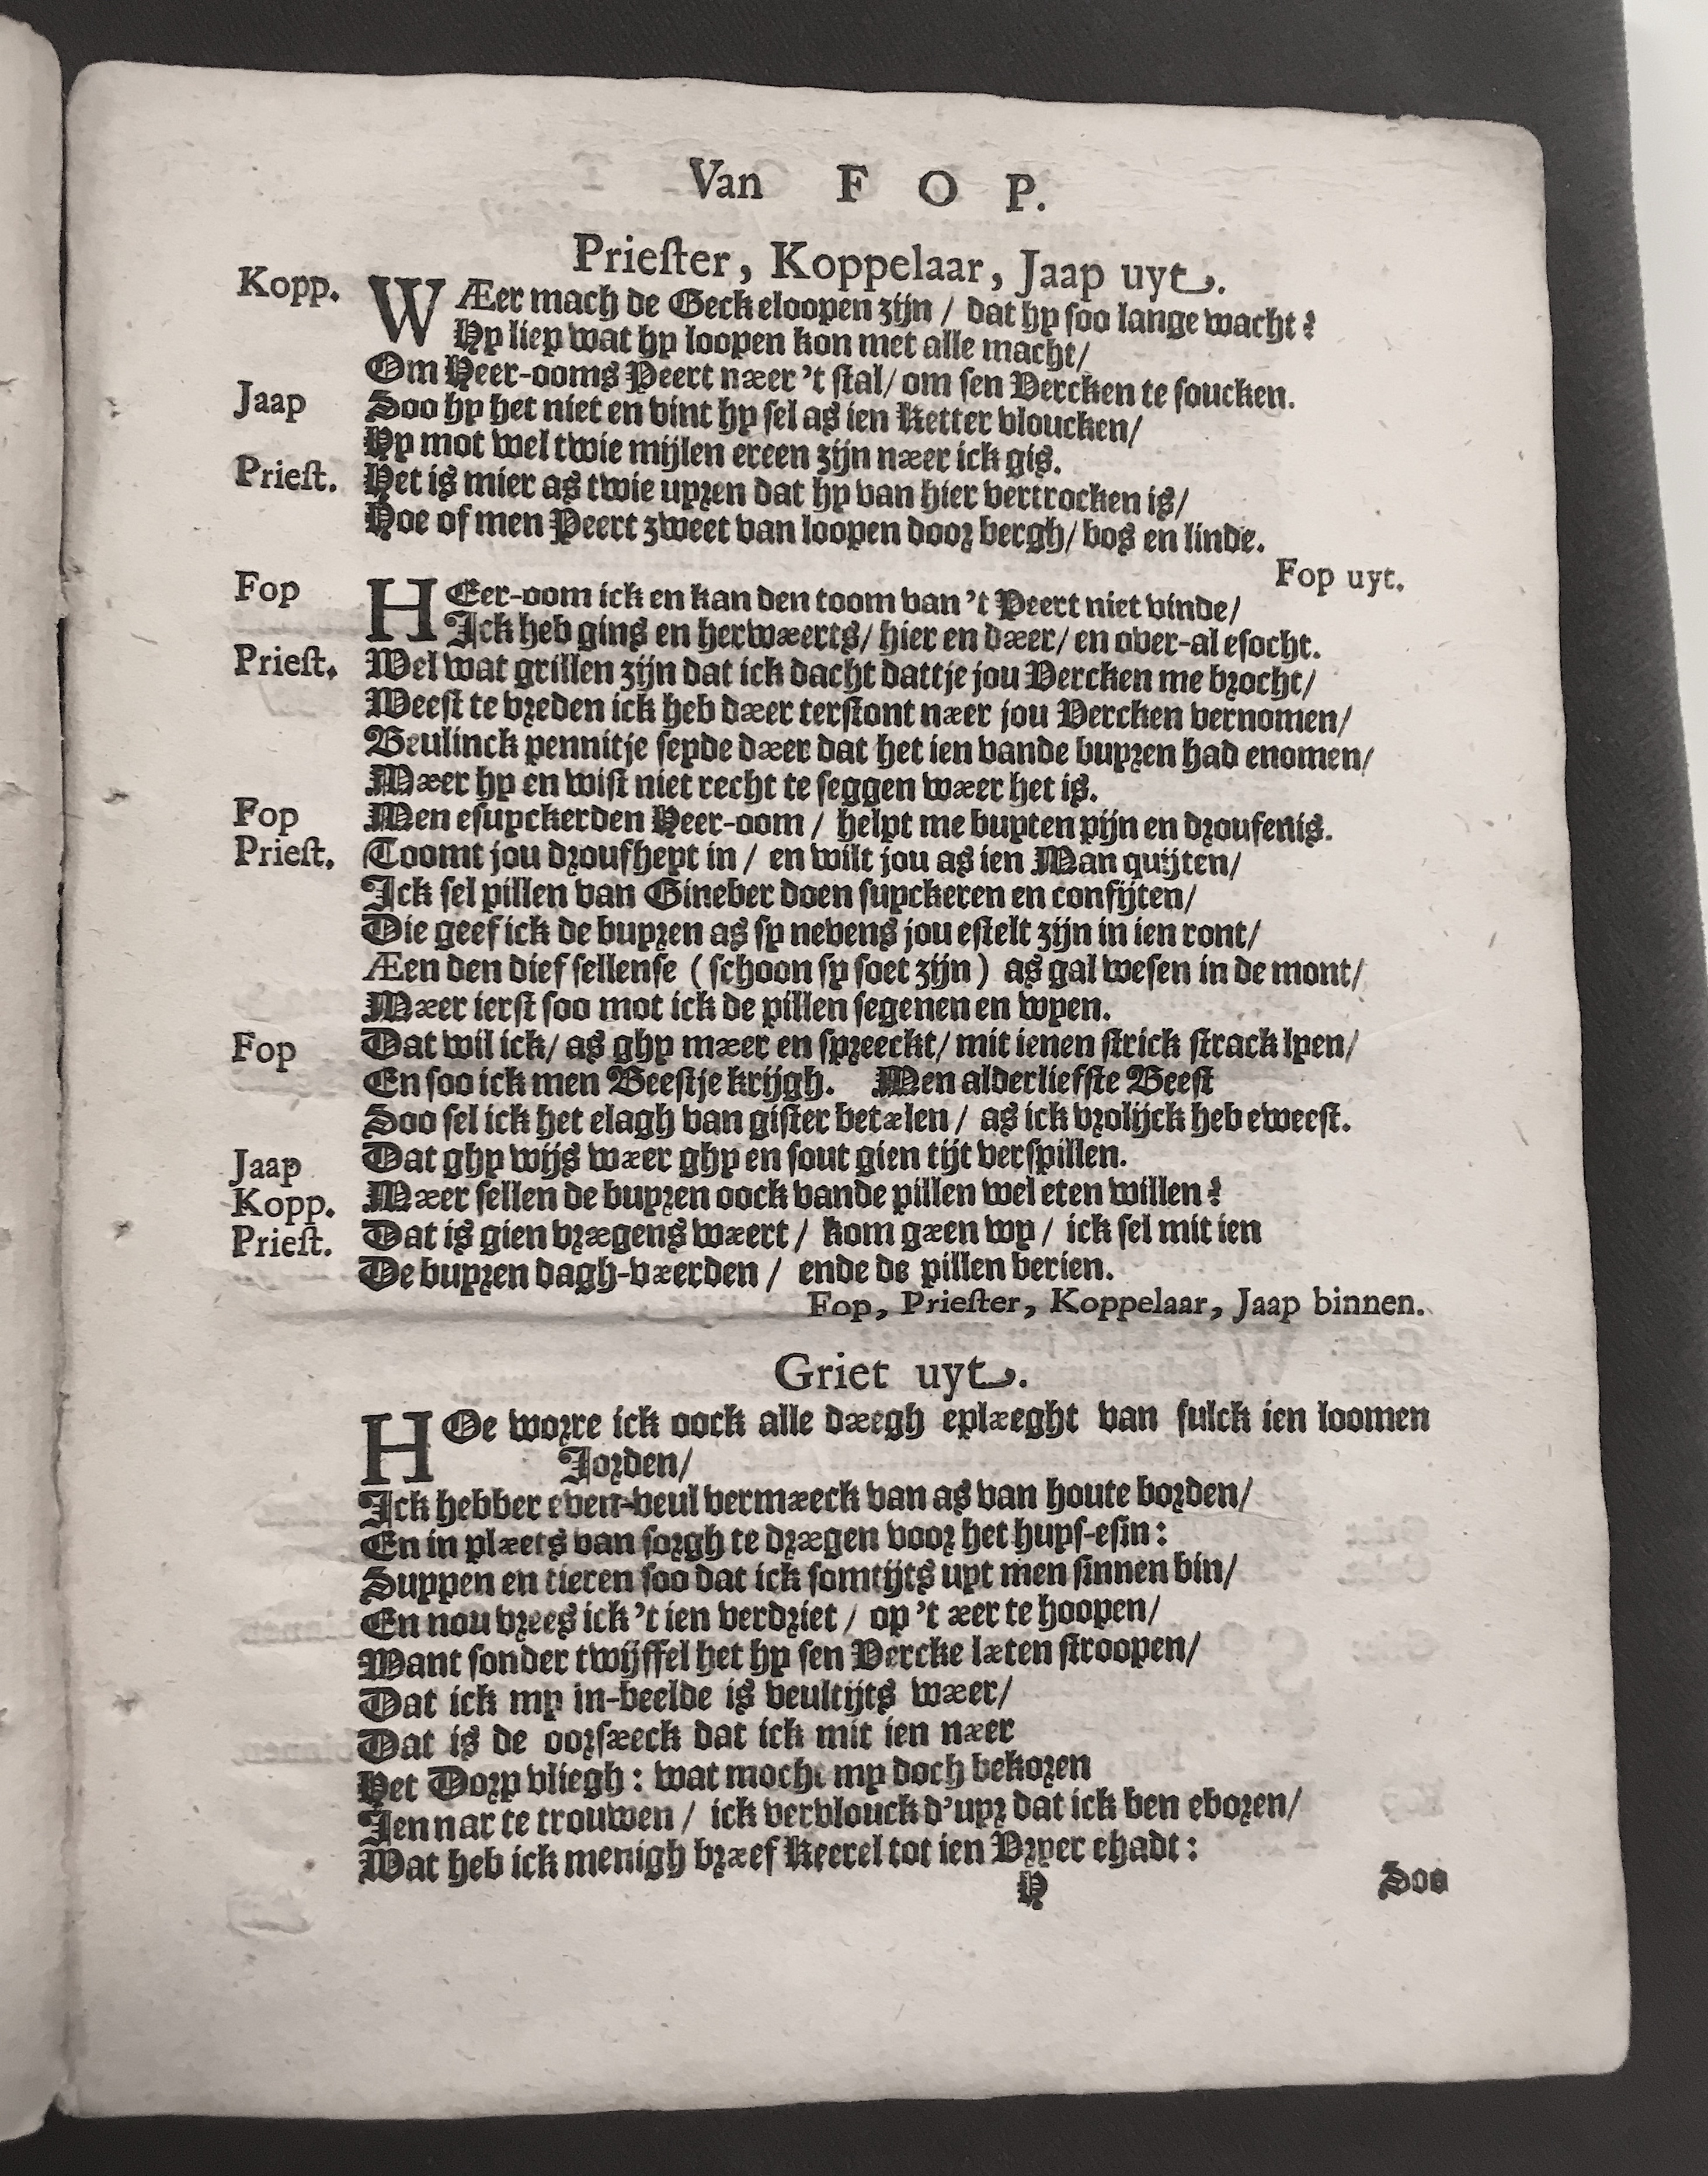 Van F O P.
Priester, Koppelaar, Jaap uyt.
Kopp. WÆer mach de Geck eloopen zijn / dat hy soo lange wacht?
Hy liep wat hy loopen kon met alle macht/
Om Heer-ooms Peert næer 't stal/ om sen Vercken te soucken.
Jaap Soo hy het niet en vint hy sel as ien Ketter vloucken/
Hy mot wel twie mijlen ereen zijn næer ick gis.
Priest. Het is mier as twie uyren dat hy van hier vertrocken is/
Hoe of men Peert zweet van loopen door bergh/ bos en linde.
Fop uyt.
Fop HEer-oom ick en kan den toom van 't Peert niet vinde/
Ick heb gins en herwæerts/ hier en dæer/ en over-al esocht.
Priest. Wel wat grillen zijn dat ick dacht dattje jou Vercken me brocht/
Weest te vreden ick heb dæer terstont næer jou Vercken vernomen/
Beulinck pennitje seyde dæer dat het ien vande buyren had enomen/
Mæer hy en wist niet recht te seggen wæer het is.
Fop Men esuyckerden Heer-oom / helpt me buyten pijn en droufenis.
Priest. Toomt jou droufheyt in / en wilt jou as ien Man quijten/
Ick sel pillen van Gineber doen suyckeren en confijten/
Die geef ick de buyren as sy nevens jou estelt zijn in ien ront/
Æen den dief sellense (schoon sy soet zijn) as gal wesen in de mont/
Mæer ierst soo mot ick de pillen segenen en wyen.
Fop Dat wil ick/ as ghy mæer en spreeckt/ mit ienen strick strack lyen/
En soo ick men Beestje krijgh. Men alderliefste Beest
Soo sel ick het elagh van gister betælen / as ick vrolijck heb eweest.
Jaap Dat ghy wijs wæer ghy en sout gien tijt verspillen.
Kopp. Mæer sellen de buyren oock vande pillen wel eten willen?
Priest. Dat is gien vrægens wæert / kom gæen wy / ick sel mit ien
De buyren dagh-væerden / ende de pillen berien.
Fop, Priester, Koppelaar, Jaap binnen.
Griet uyt.
HOe worre ick oock alle dægh eplæeght van sulck ien loomen
Jorden/
Ick hebber even-veul vermæeck van as van houte borden/
En in plæets van sorgh te drægen voor het huys-esin:
Suypen en tieren soo dat ick somtijts uyt men sinnen bin/
En nou vrees ick 't ien verdriet / op 't ær te hoopen/
Want sonder twijffel het hy sen Vercke læten stroopen/
Dat ick my in-beelde is veultijts wæer/
Dat is de oorsæeck dat ick mit ien næer
Het Dorp vliegh: wat mocht my doch bekoren
Jen nar te trouwen / ick vervlouck d'uyr dat ick ben eboren/
Wat heb ick menigh bræf Keerel tot ien Vryer ehadt:
H Soo